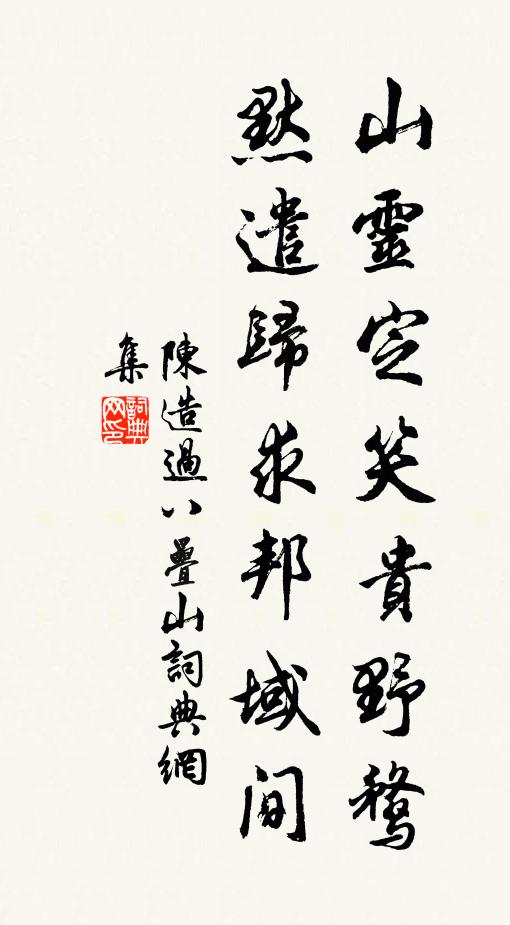 山靈定笑貴野鶩
默遣歸求邦域間
陳造過八疊山詞典網
集
詞典網印